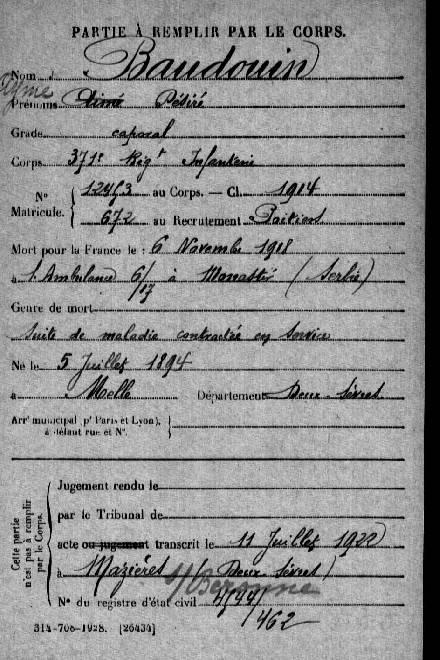 PARTIE À REMPLIR PAR LE CORPS.
Nom Baudouin
Ayme
Prénoms Aimé Désiré
Grade caporal
Corps 371e Régt Infanterie
No 12453 au Corps. — Cl. 1914
Matricule. 672 au Recrutement Poitiers
Mort pour la France le : 6 Novembre 1918
à l'Ambulance 6/17 à Monastir (Serbie)
Genre de mort
Suite de maladie contractée en service
Né le 5 Juillet 1894
à Melle Département Deux-Sèvres
Arrt municipal (pr Paris et Lyon),
à défaut rue et No.
Cette partie
n'est pas à remplir
par le Corps.
Jugement rendu le
par le Tribunal de
acte ou jugement transcrit le 11 Juillet 1922
à Mazières (Deux Sèvres)
s/Beronne
No du registre d'état civil
462
314-708-1928. [26434]